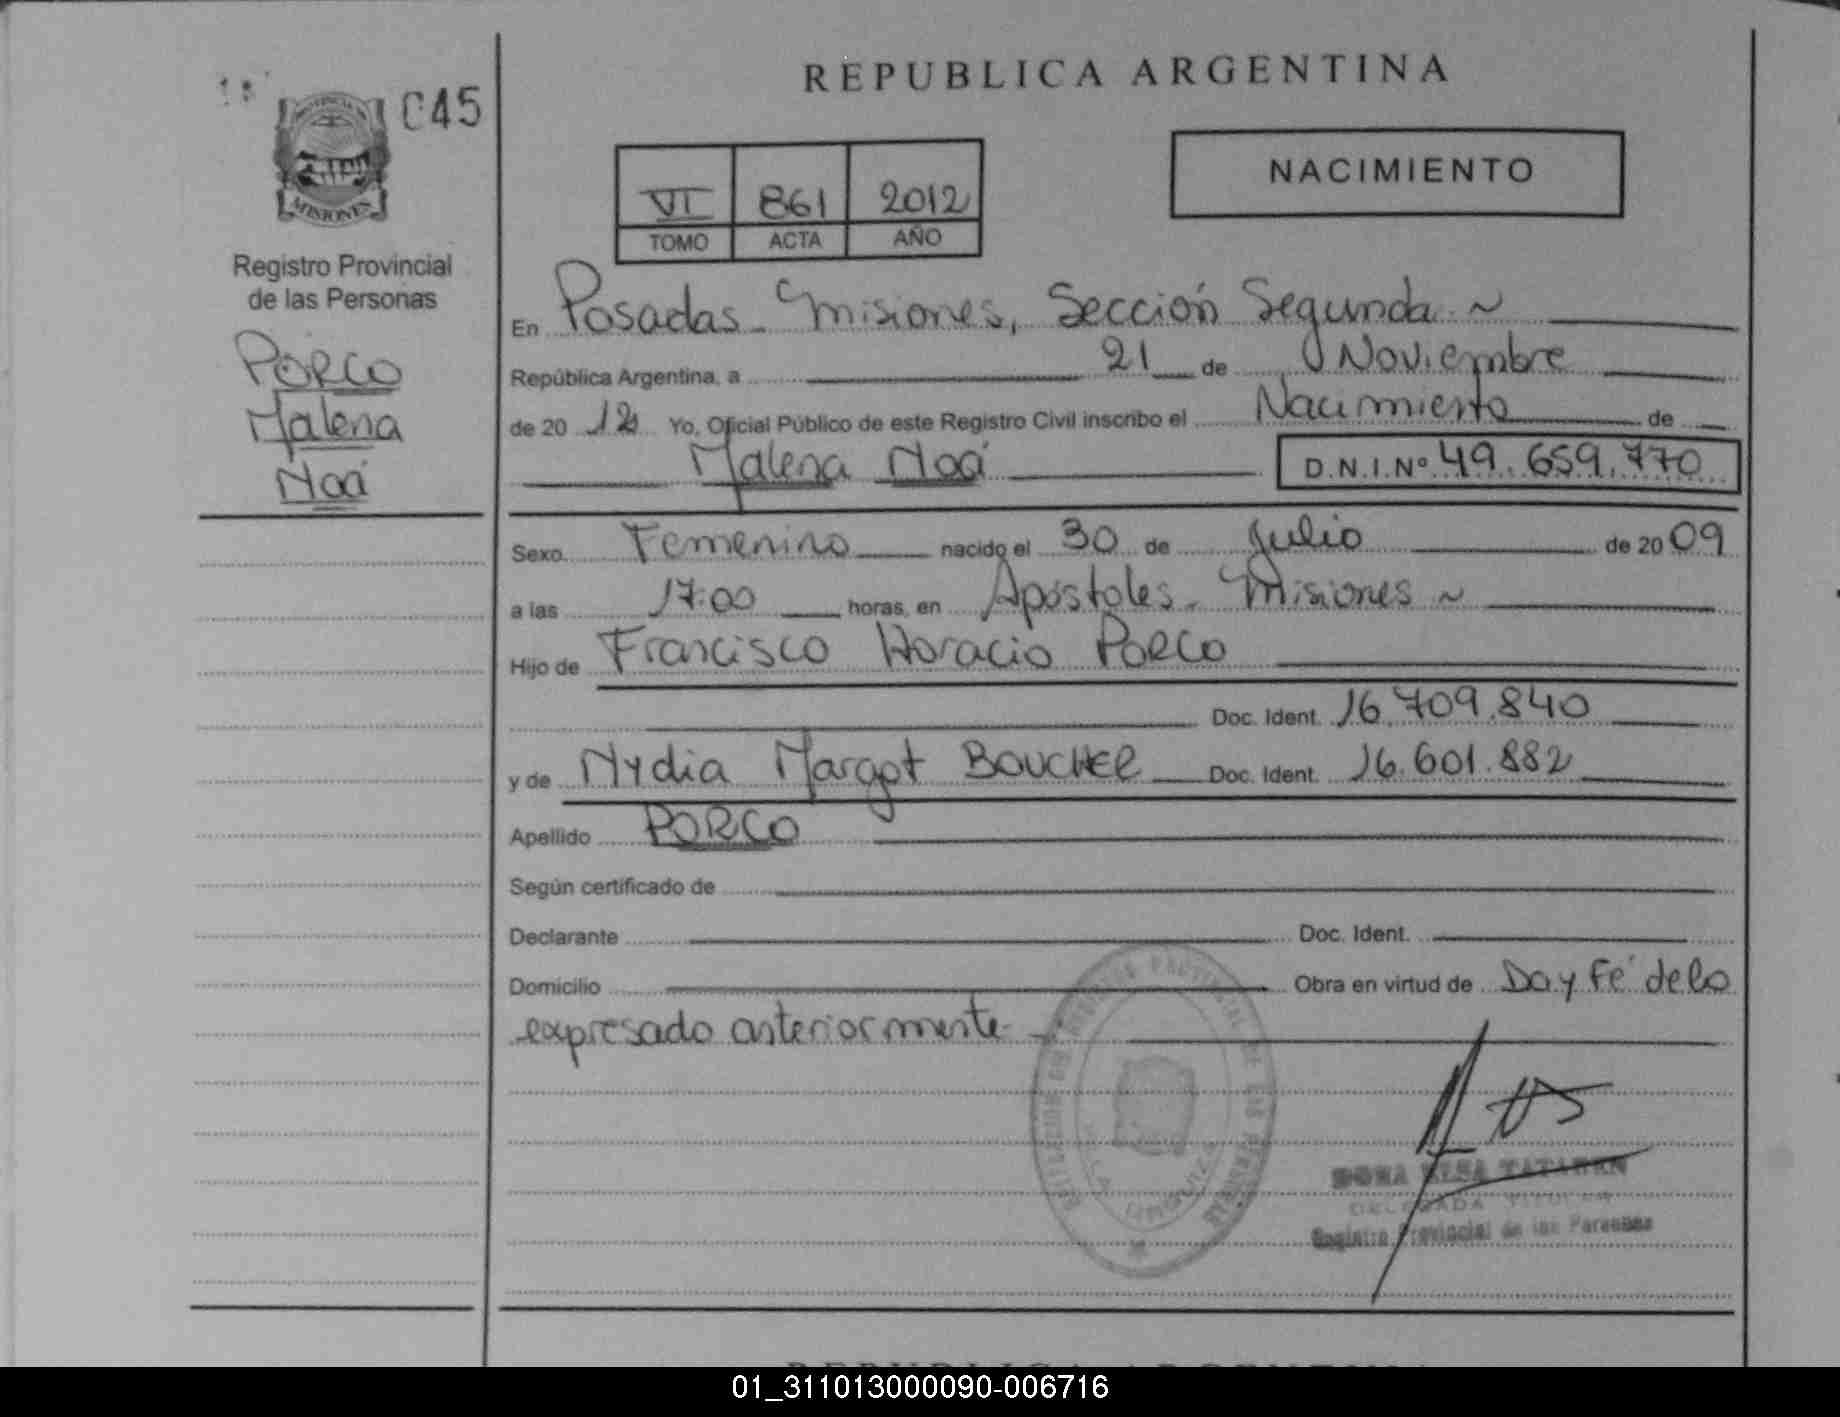 REPUBLICA ARGENTINA
045
PROVINCIA
MISIONES
Registro Provincial
de las Personas
PORCO
Malena
Noá
NACIMIENTO
VI 861 2012
TOMO ACTA AÑO
En Posadas - Misiones, Sección Segunda ~
República Argentina, a 21 de Noviembre
de 20 12 Yo, Oficial Público de este Registro Civil inscribo el Nacimiento de
Malena Noá D.N.I.Nº 49.659.770
Sexo Femenino nacido el 30 de Julio de 20 09
a las 17:00 horas, en Apóstoles - Misiones ~
Hijo de Francisco Horacio PORCO
Doc. Ident. 16.709.840
y de Nydia Margot BOUCHER Doc. Ident. 16.601.882
Apellido PORCO
Según certificado de
Declarante Doc. Ident.
Domicilio Obra en virtud de Doy Fé de lo
expresado anteriormente -
PROVINCIAL DE LAS PERSONAS
DELEGADA TITULAR
Registro Provincial de las Personas
REPUBLICA ARGENTINA
01_311013000090-006716